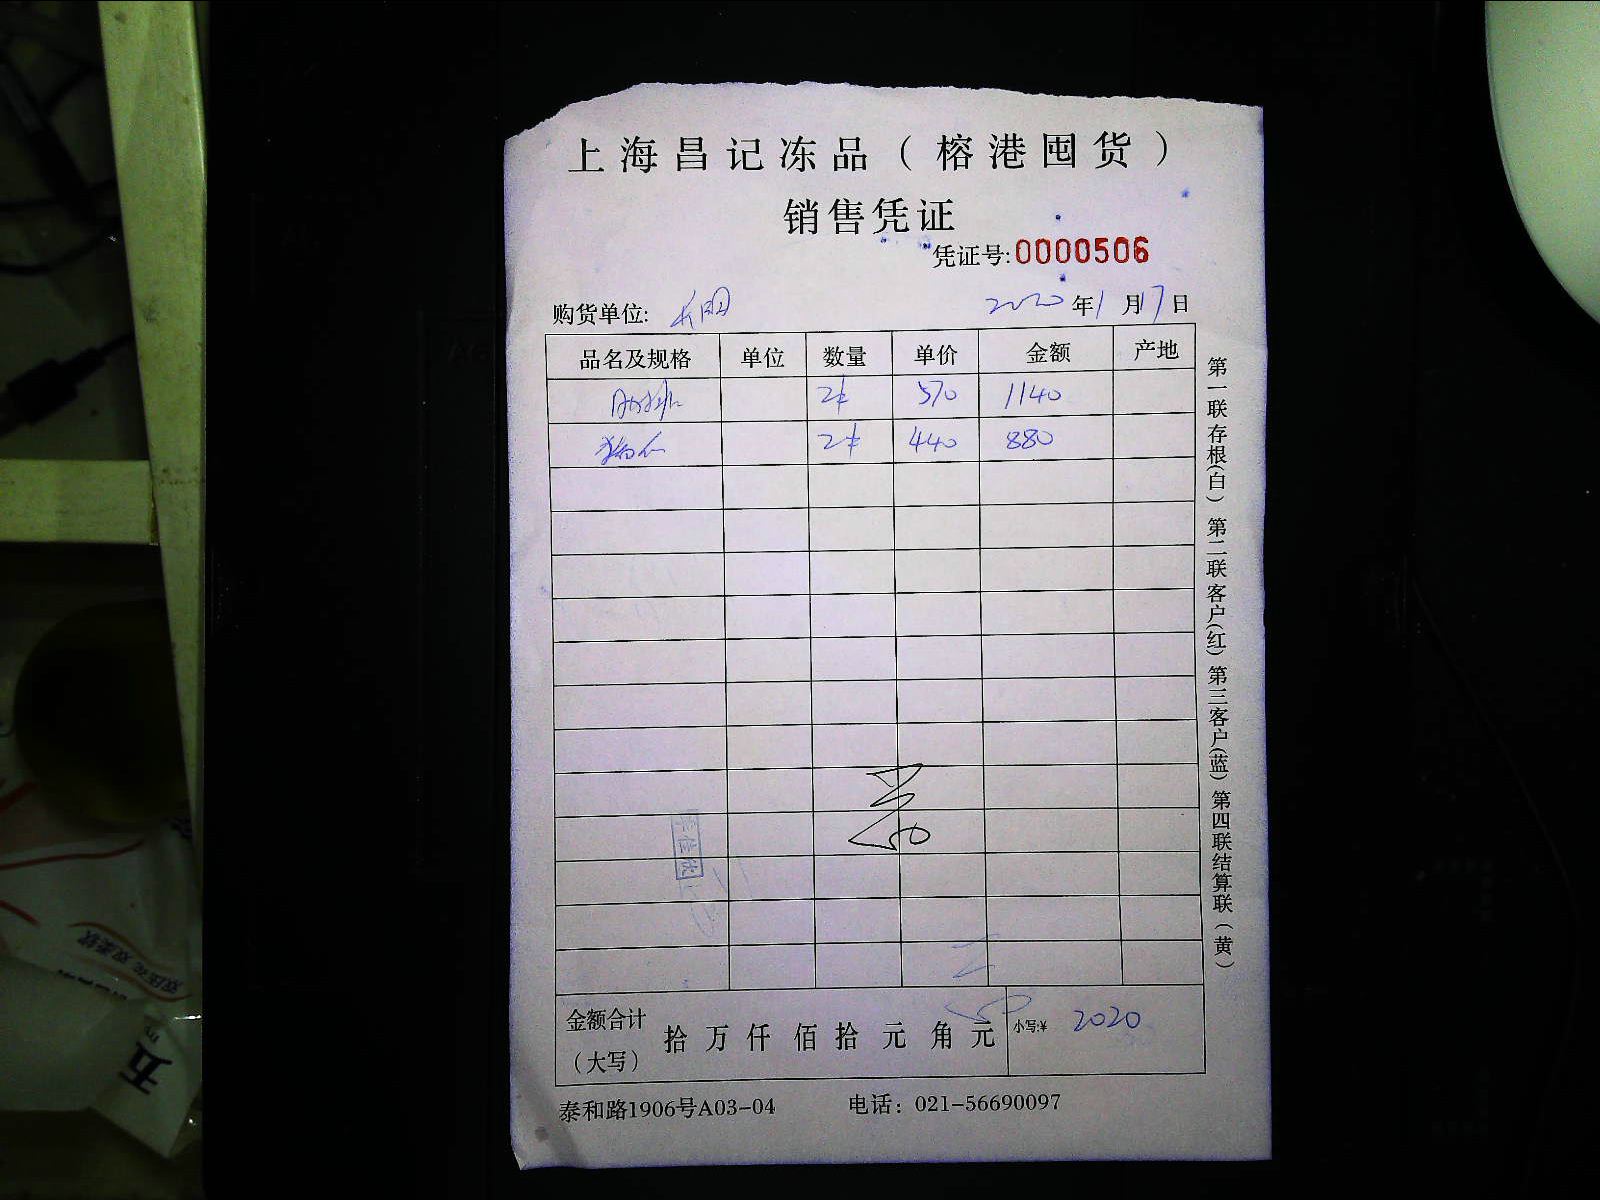 上海昌记冻品（榕港囤货）
销售凭证
凭证号:0000506
购货单位: 2020年1月17日
品名及规格 单位 数量 单价 金额 产地
肋排 2件 570 1140
2件 440 880
金额合计（大写） 拾 万 仟 佰 拾 元 角 元 小写:¥ 2020
泰和路1906号A03-04 电话：021-56690097
第一联存根(白) 第二联客户(红) 第三客户(蓝) 第四联结算联(黄)
五